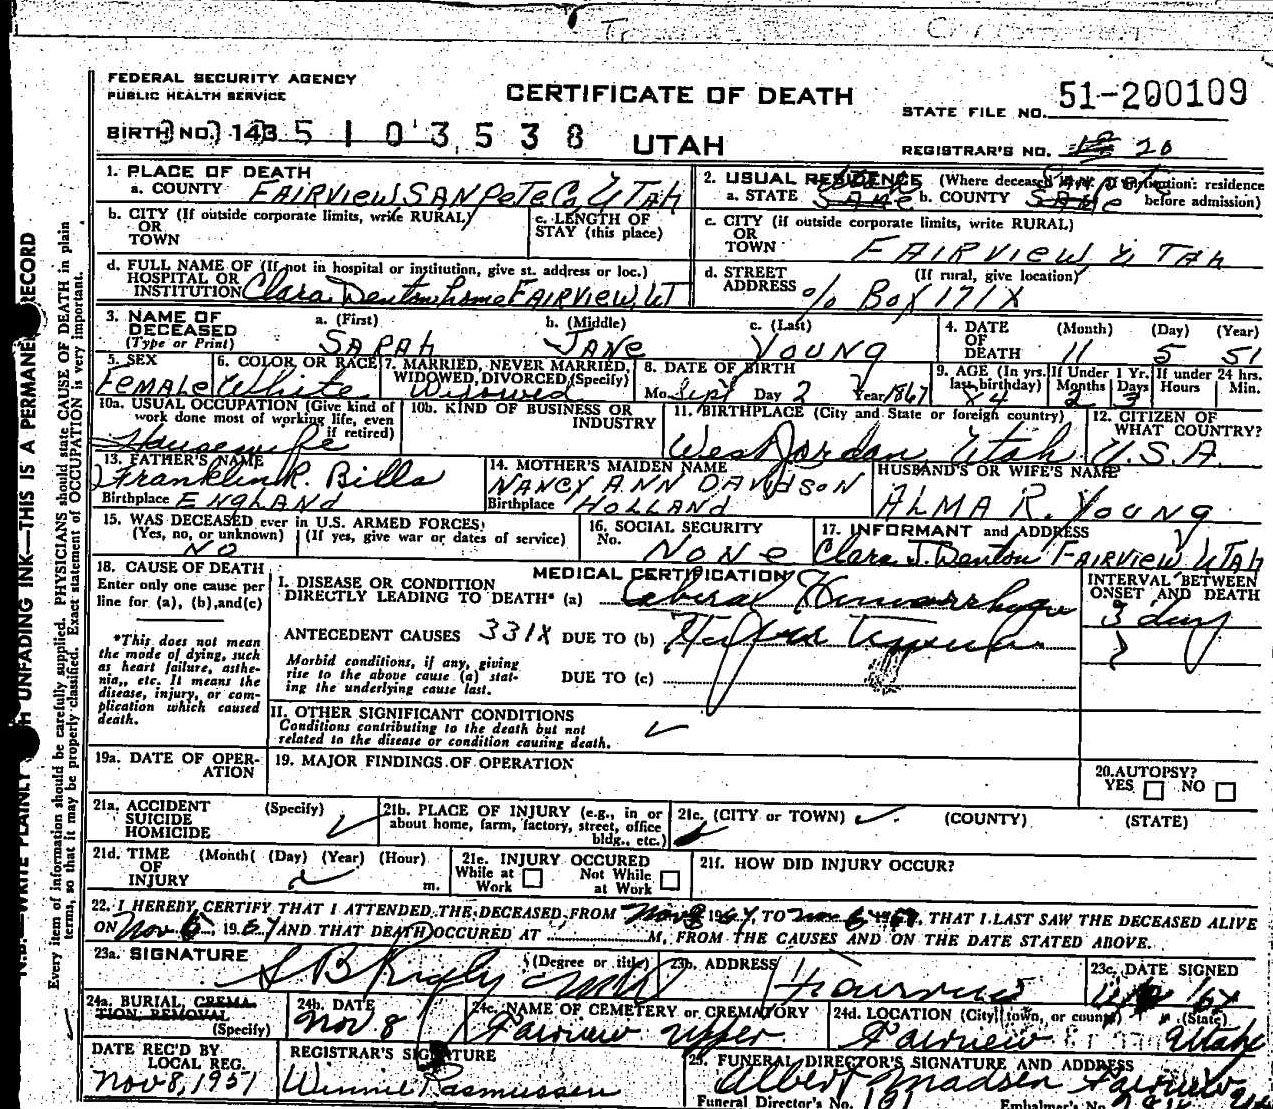 FEDERAL SECURITY AGENCY
PUBLIC HEALTH SERVICE
CERTIFICATE OF DEATH
STATE FILE NO. 51-200109
BIRTH NO. 143
5 1 0 3 5 3 8
UTAH
REGISTRAR'S NO. 20
1. PLACE OF DEATH
a. COUNTY FAIRVIEW SANPETE CO, UTAH
2. USUAL RESIDENCE (Where deceased institution: residence before admission)
a. STATE Same b. COUNTY Same
b. CITY (If outside corporate limits, write RURAL)
OR
TOWN
c. LENGTH OF
STAY (this place)
c. CITY (if outside corporate limits, write RURAL)
OR
TOWN FAIRVIEW UTAH
d. FULL NAME OF (If not in hospital or institution, give st. address or loc.)
HOSPITAL OR
INSTITUTION Clara Denton home FAIRVIEW, UT
d. STREET (If rural, give location)
ADDRESS % Box 171X
3. NAME OF
DECEASED
(Type or Print)
a. (First) SARAH
b. (Middle) JANE
c. (Last) YOUNG
4. DATE
OF
DEATH
(Month) (Day) (Year)
11 5 51
5. SEX
Female
6. COLOR OR RACE
White
7. MARRIED, NEVER MARRIED,
WIDOWED, DIVORCED (Specify)
Widowed
8. DATE OF BIRTH
Mo. Sept Day 2 Year 1867
9. AGE (In yrs. last birthday) 84
If Under 1 Yr.
Months 2 Days 3
If under 24 hrs.
Hours Min.
10a. USUAL OCCUPATION (Give kind of
work done most of working life, even
if retired)
Housewife
10b. KIND OF BUSINESS OR
INDUSTRY
11. BIRTHPLACE (City and State or foreign country)
West Jordan Utah
12. CITIZEN OF
WHAT COUNTRY?
U.S.A.
13. FATHER'S NAME
Franklin R. Bills
Birthplace ENGLAND
14. MOTHER'S MAIDEN NAME
NANCY ANN DAVIDSON
Birthplace HOLLAND
HUSBAND'S OR WIFE'S NAME
ALMA R. YOUNG
15. WAS DECEASED ever in U.S. ARMED FORCES?
(Yes, no, or unknown) (If yes, give war or dates of service)
NO
16. SOCIAL SECURITY
No. NONE
17. INFORMANT and ADDRESS
Clara J. Denton FAIRVIEW UTAH
18. CAUSE OF DEATH
Enter only one cause per
line for (a), (b), and (c)
*This does not mean
the mode of dying, such
as heart failure, asthe-
nia, etc. It means the
disease, injury, or com-
plication which caused
death.
MEDICAL CERTIFICATION
I. DISEASE OR CONDITION
DIRECTLY LEADING TO DEATH* (a) Cerebral Hemorrhage
INTERVAL BETWEEN
ONSET AND DEATH
3 days
ANTECEDENT CAUSES 331X DUE TO (b)
?
Morbid conditions, if any, giving
rise to the above cause (a) stat-
ing the underlying cause last.
DUE TO (c)
II. OTHER SIGNIFICANT CONDITIONS
Conditions contributing to the death but not
related to the disease or condition causing death.
19a. DATE OF OPER-
ATION
19. MAJOR FINDINGS OF OPERATION
20. AUTOPSY?
YES NO
21a. ACCIDENT
SUICIDE
HOMICIDE
(Specify)
21b. PLACE OF INJURY (e.g., in or
about home, farm, factory, street, office
bldg., etc.)
21c. (CITY or TOWN) (COUNTY) (STATE)
21d. TIME
OF
INJURY
(Month) (Day) (Year) (Hour)
m.
21e. INJURY OCCURED
While at Work
Not While at Work
21f. HOW DID INJURY OCCUR?
22. I HEREBY CERTIFY THAT I ATTENDED THE DECEASED FROM Nov 19 TO Nov 19 THAT I LAST SAW THE DECEASED ALIVE
ON Nov 19 AND THAT DEATH OCCURED AT M, FROM THE CAUSES AND ON THE DATE STATED ABOVE.
23a. SIGNATURE
(Degree or title)
23b. ADDRESS
Fairview
23c. DATE SIGNED
24a. BURIAL, CREMA-
TION, REMOVAL
(Specify)
24b. DATE
Nov 8
24c. NAME OF CEMETERY OR CREMATORY
Fairview Upper
24d. LOCATION (City, town, or county) (State)
Fairview Utah
DATE REC'D BY
LOCAL REG.
Nov 8, 1951
REGISTRAR'S SIGNATURE
Winnie Rasmussen
25. FUNERAL DIRECTOR'S SIGNATURE AND ADDRESS
Albert Madsen Fairview
Funeral Director's No. 101
Embalmer's No.
UNFADING INK—THIS IS A PERMANENT RECORD
Every item of information should be carefully supplied. PHYSICIANS should state CAUSE OF DEATH in plain
terms, so that it may be properly classified. Exact statement of OCCUPATION is very important.